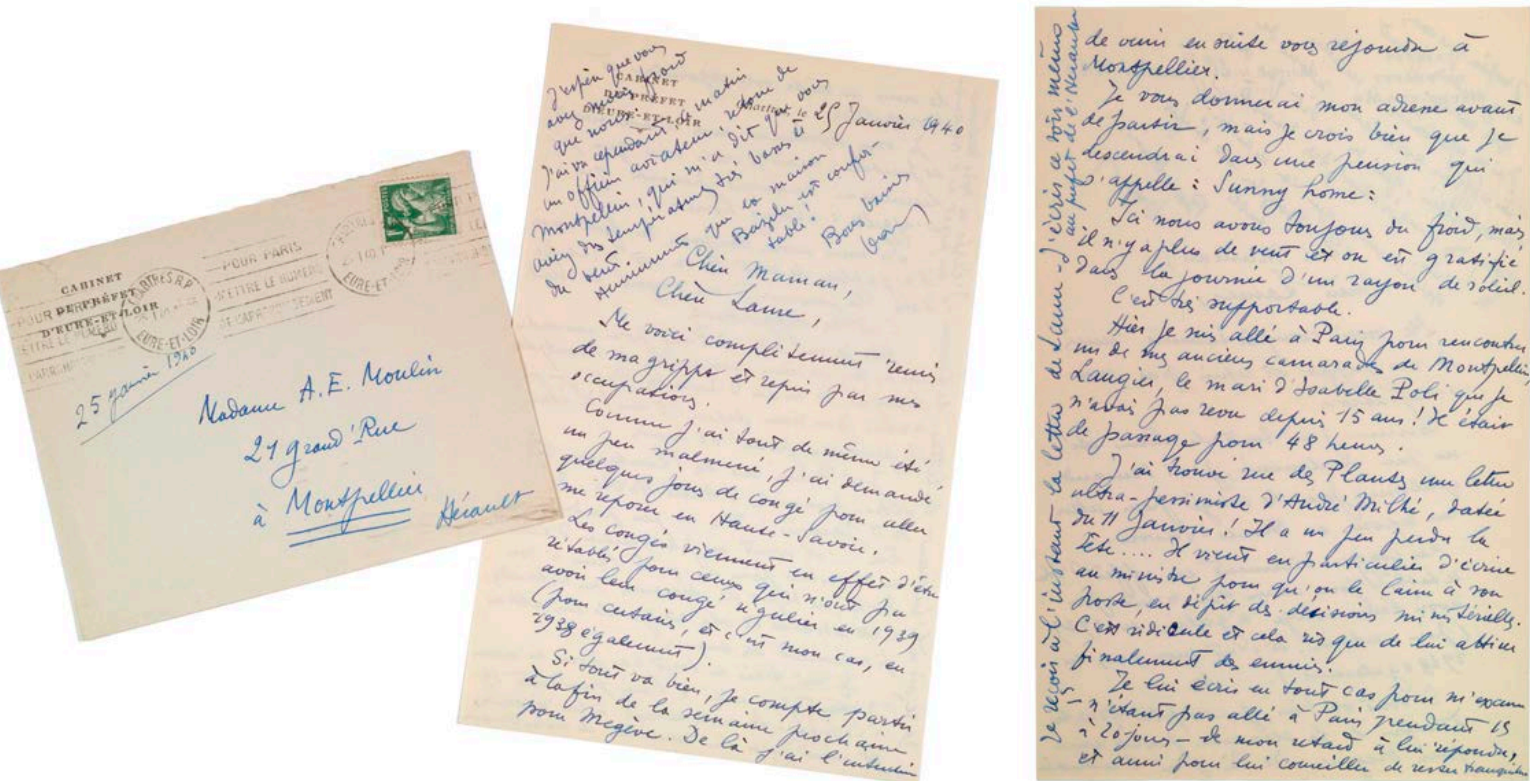 CABINET
DU PRÉFET
D'EURE-ET-LOIR
POUR PARIS
METTRE LE NUMERO
DE L'ARRONDISSEMENT
CHARTRES R.P.
EURE-ET-LOIR
25 janvier 1940
Madame A. E. Moulin
21 grand'Rue
à Montpellier
Hérault
CABINET
DU PRÉFET
D'EURE-ET-LOIR
Chartres, le 25 Janvier 1940
J'espère que vous
avez moins froid
que nous.
J'ai vu cependant ce matin
un officier aviateur, retour de
Montpellier, qui m'a dit que vous
aviez des températures très basses et
du vent.
Heureusement que la maison
Bazille est confor-
table!
Bons baisers
Jean
Chère Maman,
Chère Laure,
Me voici complètement remis
de ma grippe et repris par mes
occupations.
Comme j'ai tout de même été
un peu malmené, j'ai demandé
quelques jours de congé pour aller
me reposer en Haute-Savoie.
Les congés viennent en effet d'être
rétablis pour ceux qui n'ont pu
avoir leur congé régulier en 1939
(pour certains, et c'est mon cas, en
1938 également).
Si tout va bien, je compte partir
à la fin de la semaine prochaine
pour Megève. De là j'ai l'intention
de venir ensuite vous rejoindre à
Montpellier.
Je vous donnerai mon adresse avant
de partir, mais je crois bien que je
descendrai dans une pension qui
s'appelle : Sunny home :
Ici nous avons toujours du froid, mais
il n'y a plus de vent et on est gratifié
dans la journée d'un rayon de soleil.
C'est très supportable.
Hier je suis allé à Paris pour rencontrer
un de mes anciens camarades de Montpellier
Laugier, le mari d'Isabelle Poli que je
n'avais pas revu depuis 15 ans ! Il était
de passage pour 48 heures.
J'ai trouvé rue des Plantes une lettre
ultra-pessimiste d'André Milhé, datée
du 11 Janvier ! Il a un peu perdu la
tête.... Il vient en particulier d'écrire
au ministre pour qu'on le laisse à son
poste, en dépit des décisions ministérielles.
C'est ridicule et cela risque de lui attirer
finalement des ennuis.
Je lui écris en tout cas pour m'excuser
- n'étant pas allé à Paris pendant 15
à 20 jours - de mon retard à lui répondre,
et aussi pour lui conseiller de rester tranquille
Je reçois à l'instant la lettre de Laure - J'écris ce soir même
au préfet de l'Hérault